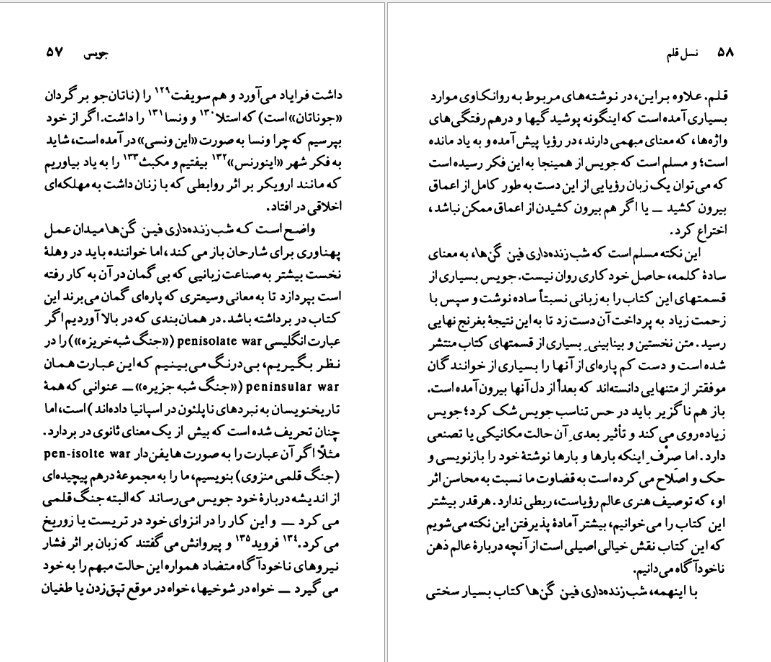 جویس ۵۷
داشت فرایاد می‌آورد و هم سویفت۱۲۹ را (ناتان‌جو برگردان
«جوناتان» است) که استلا۱۳۰ و ونسا۱۳۱ را داشت. اگر از خود
بپرسیم که چرا ونسا به صورت «این ونسی» در آمده است، شاید
به فکر شهر «اینورنس»۱۳۲ بیفتیم و مکبث۱۳۳ را به یاد بیاوریم
که مانند ارویکر بر اثر روابطی که با زنان داشت به مهلکه‌ای
اخلاقی در افتاد.
واضح است که شب‌زنده‌داری فین گن‌ها میدان عمل
پهناوری برای شارحان باز می‌کند، اما خواننده باید در وهلهٔ
نخست بیشتر به صناعت زبانیی که بی گمان در آن به کار رفته
است بپردازد تا به معانی وسیعتری که پاره‌ای گمان می‌برند این
کتاب در برداشته باشد. در همان‌بندی که در بالا آوردیم اگر
عبارت انگلیسی penisolate war («جنگ شبه‌خریزه») را در
نظر بگیریم، بی‌درنگ می‌بینیم که این عبارت همان
peninsular war («جنگ شبه جزیره» ــ عنوانی که همهٔ
تاریخنویسان به نبردهای ناپلئون در اسپانیا داده‌اند) است، اما
چنان تحریف شده است که بیش از یک معنای ثانوی در بردارد.
مثلاً اگر آن عبارت را به صورت هایفن‌دار pen-isolte war
(جنگ قلمی منزوی) بنویسیم، ما را به مجموعهٔ درهم پیچیده‌ای
از اندیشه دربارهٔ خود جویس می‌رساند که البته جنگ قلمی
می‌کرد ــ و این کار را در انزوای خود در تریست یا زوریخ
می‌کرد.۱۳۴ فروید۱۳۵ و پیروانش می‌گفتند که زبان بر اثر فشار
نیروهای ناخودآگاه متضاد همواره این حالت مبهم را به خود
می‌گیرد ــ خواه در شوخیها، خواه در موقع تپق‌زدن یا طغیان
۵۸ نسل قلم
قلم. علاوه براین، در نوشته‌های مربوط به روانکاوی موارد
بسیاری آمده است که اینگونه پوشیدگیها و درهم رفتگی‌های
واژه‌ها، که معنای مبهمی دارند، در رؤیا پیش آمده و به یاد مانده
است؛ و مسلم است که جویس از همینجا به این فکر رسیده است
که می‌توان یک زبان رؤیایی از این دست به طور کامل از اعماق
بیرون کشید ــ یا اگر هم بیرون کشیدن از اعماق ممکن نباشد،
اختراع کرد.
این نکته مسلم است که شب‌زنده‌داری فین گن‌ها، به معنای
سادهٔ کلمه، حاصل خود کاری روان نیست. جویس بسیاری از
قسمتهای این کتاب را به زبانی نسبتاً ساده نوشت و سپس با
زحمت زیاد به پرداخت آن دست زد تا به این نتیجهٔ بغرنج نهایی
رسید. متن نخستین و بینابینیِ بسیاری از قسمتهای کتاب منتشر
شده است و دست کم پاره‌ای از آنها را بسیاری از خوانندگان
موفقتر از متنهایی دانسته‌اند که بعداً از دل آنها بیرون آمده است.
باز هم ناگزیر باید در حس تناسب جویس شک کرد؛ جویس
زیاده‌روی می‌کند و تأثیر بعدیِ آن حالت مکانیکی یا تصنعی
دارد. اما صِرْفِ اینکه بارها و بارها نوشتهٔ خود را بازنویسی و
حک و اصلاح می‌کرده است به قضاوت ما نسبت به محاسن اثر
او، که توصیف هنری عالم رؤیاست، ربطی ندارد. هر قدر بیشتر
این کتاب را می‌خوانیم، بیشتر آمادهٔ پذیرفتن این نکته می‌شویم
که این کتاب نقش خیالی اصیلی است از آنچه دربارهٔ عالم ذهن
ناخودآگاه می‌دانیم.
با اینهمه، شب‌زنده‌داری فین گن‌ها کتاب بسیار سختی